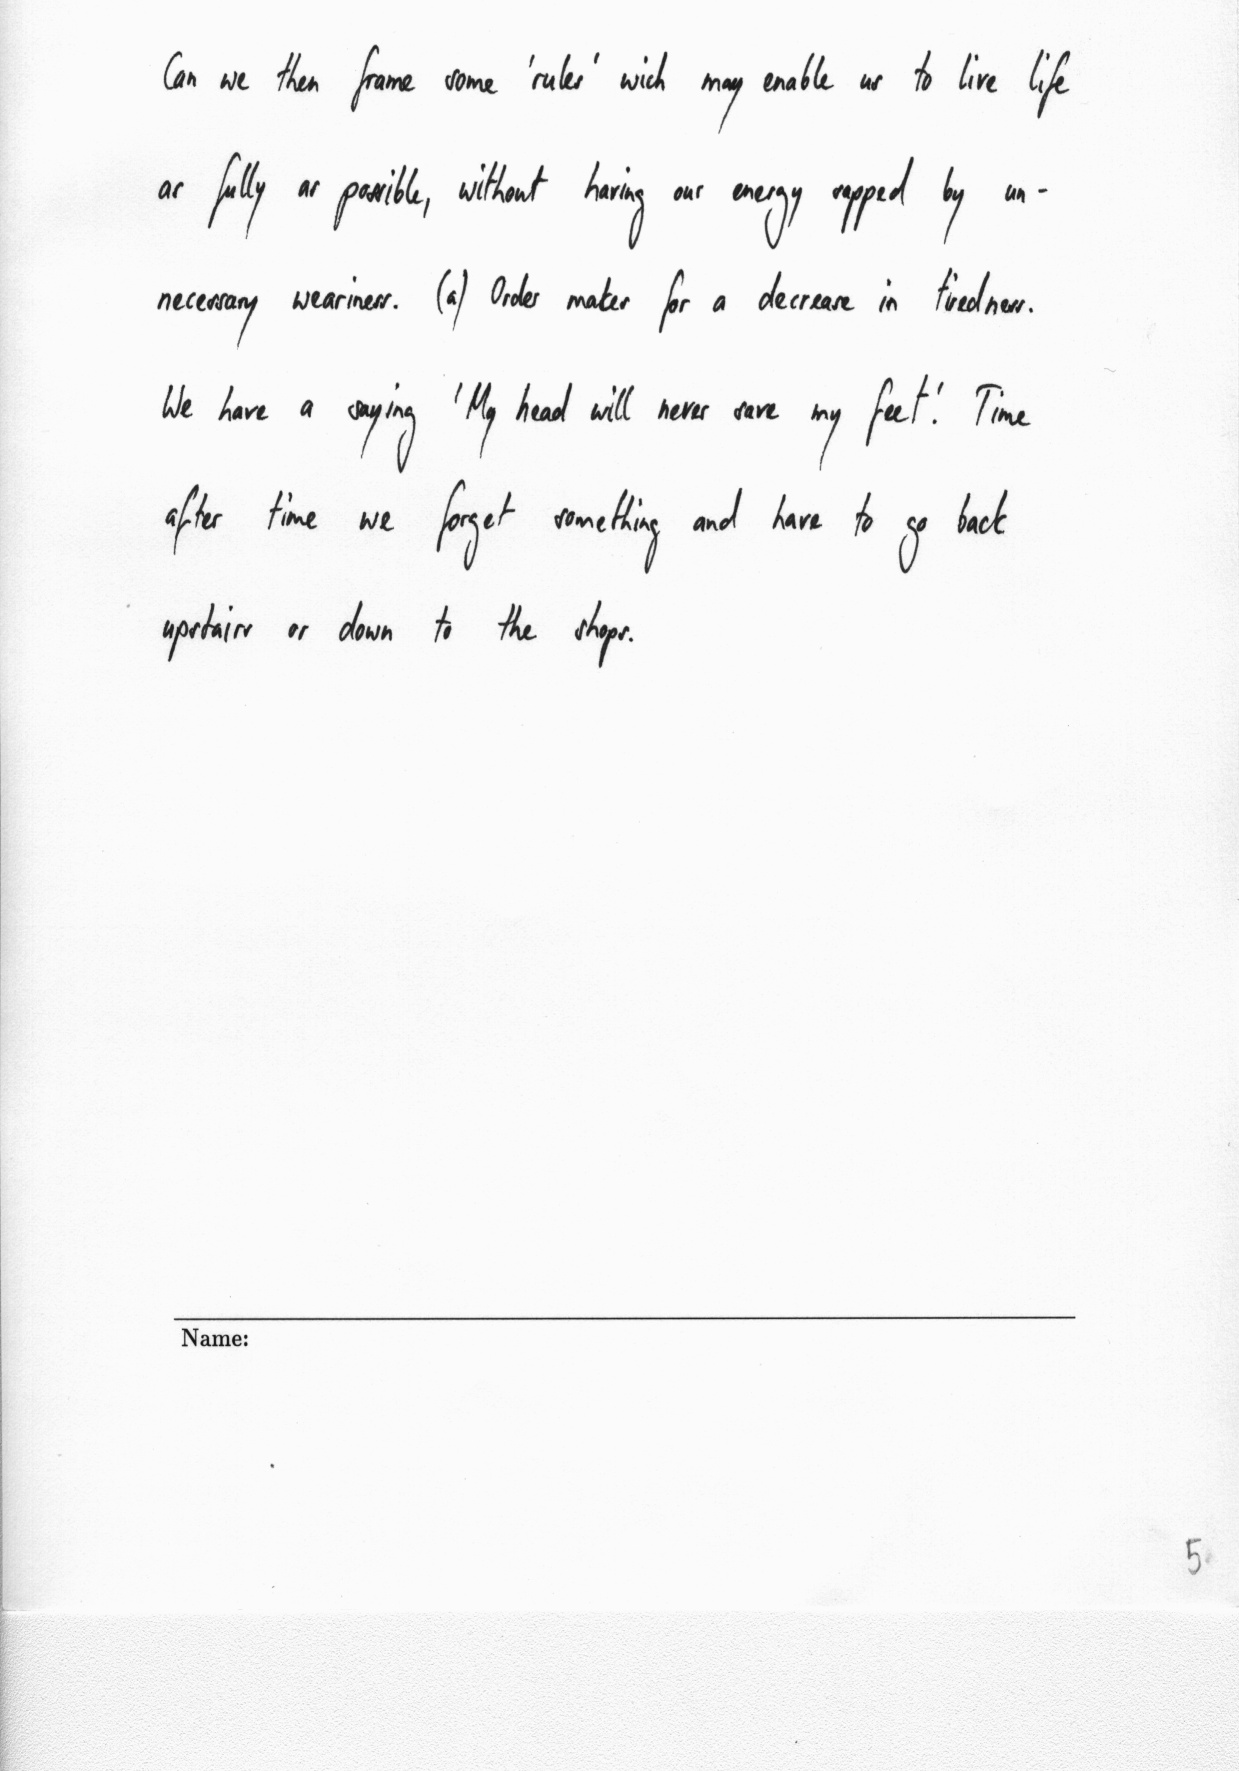 Can we then frame some 'rules' wich may enable us to live life
as fully as possible, without having our energy sapped by un-
necessary weariness. (a) Order makes for a decrease in tiredness.
We have a saying 'My head will never save my feet'. Time
after time we forget something and have to go back
upstairs or down to the shops.
Name:
5